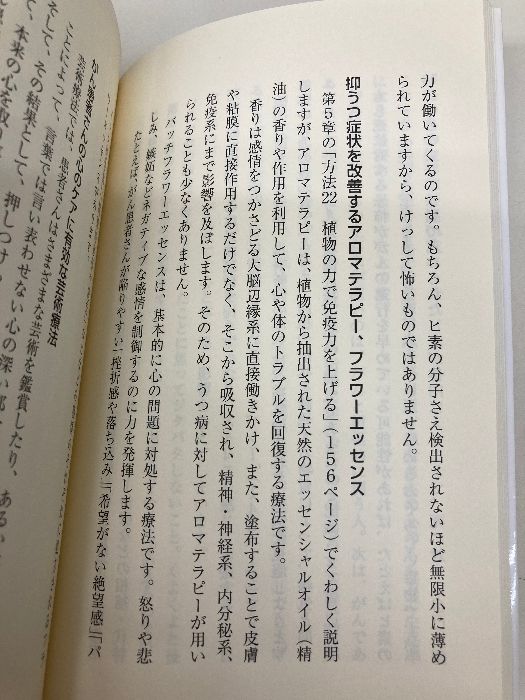 力が働いてくるのです。もちろん、ヒ素の分子さえ検出されないほど無限小に薄め
られていますから、けっして怖いものではありません。
抑うつ症状を改善するアロマテラピー、フラワーエッセンス
第5章の「方法22　植物の力で免疫力を上げる」(156ページ)でくわしく説明
しますが、アロマテラピーは、植物から抽出された天然のエッセンシャルオイル(精
油)の香りや作用を利用して、心や体のトラブルを回復する療法です。
香りは感情をつかさどる大脳辺縁系に直接働きかけ、また、塗布することで皮膚
や粘膜に直接作用するだけでなく、そこから吸収され、精神・神経系、内分秘系、
免疫系にまで影響を及ぼします。そのため、うつ病に対してアロマテラピーが用い
られることも少なくありません。
バッチフラワーエッセンスは、基本的に心の問題に対処する療法です。怒りや悲
しみ、嫉妬などネガティブな感情を制御するのに力を発揮します。
たとえば、がん患者さんが陥りやすい「挫折感や落ち込み」「希望がない絶望感」「パ
がん患者さんの心のケアに有効な芸術療法
芸術療法では、患者さんはさまざまな芸術を鑑賞したり、
ことによって、言葉では言い表わせない心の深い部
そして、その結果として、押しつけ
本来の心を取